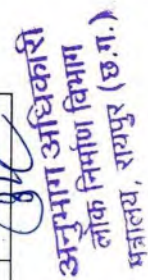 अनुभाग अधिकारी
लोक निर्माण विभाग
मंत्रालय, रायपुर (छ.ग.)